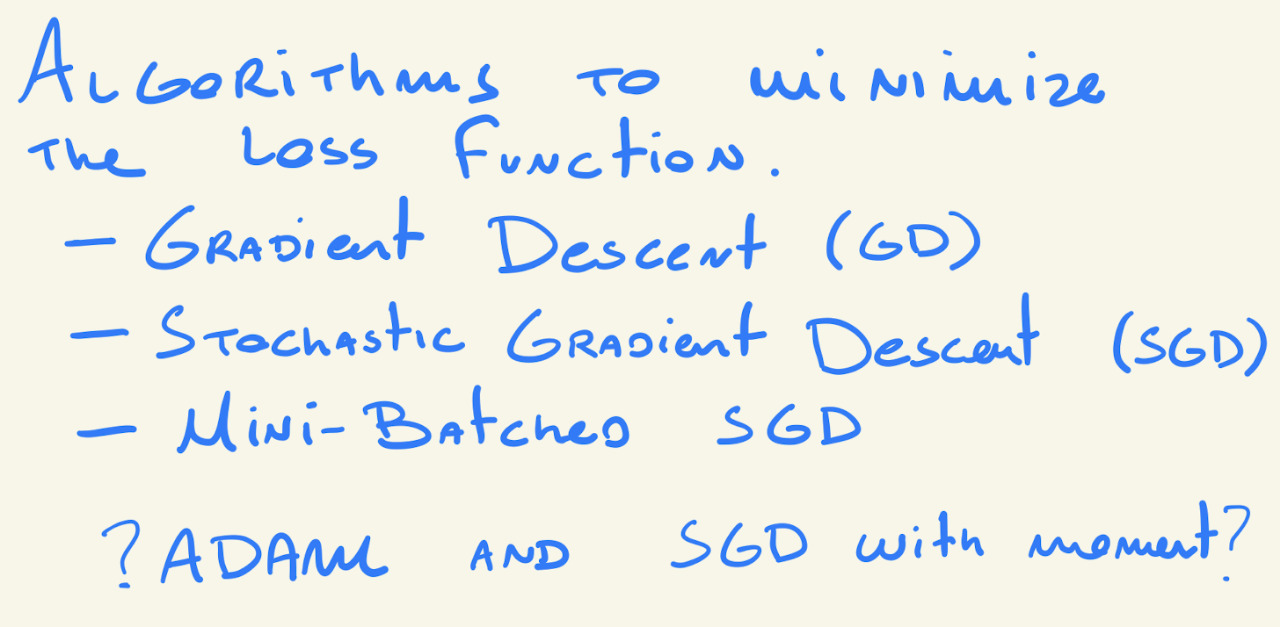 Algorithms to minimize
the Loss Function.
- Gradient Descent (GD)
- Stochastic Gradient Descent (SGD)
- Mini-Batched SGD
? ADAM and SGD with moment?